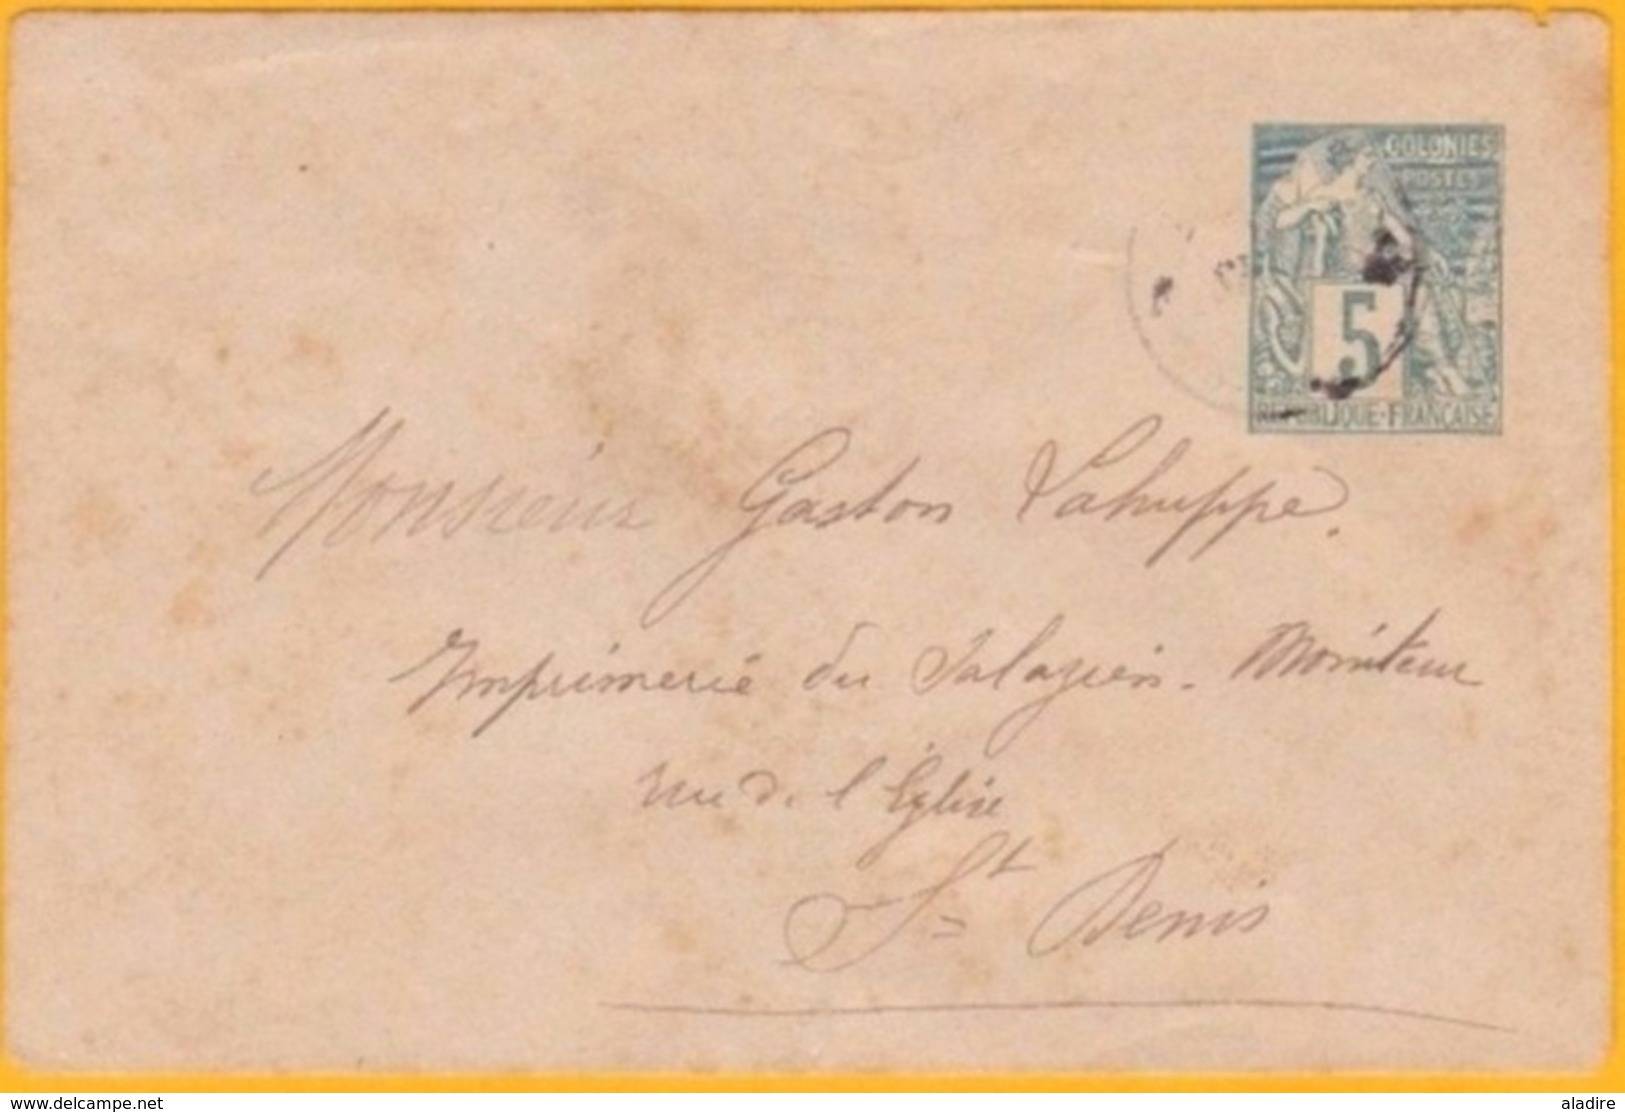 COLONIES
POSTES
5
REPUBLIQUE·FRANÇAISE
Monsieur Gaston Lahuppe.
Imprimerie du Salazien. Moniteur
rue d. l'Église
St Denis
delcampe.net
aladire